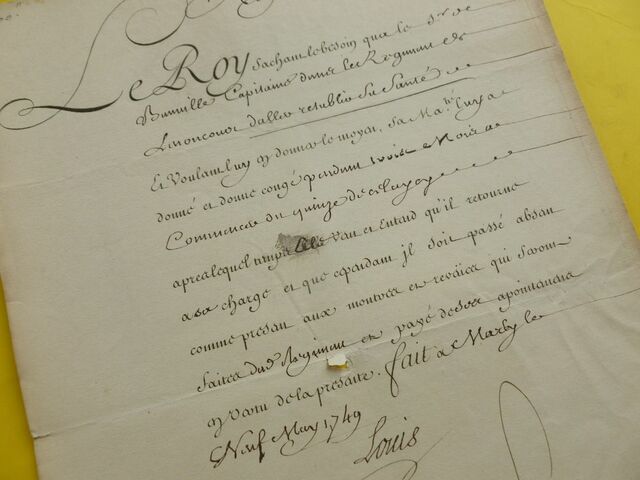 Le Roy sachant le besoin que le Sr. de
Bunville Capitaine dans le Regiment de
Lenoncour d'aller retablir sa Santé
Et Voulant luy en donner le moyen, Sa Maté. luy a
donné et donne congé pendant trois Mois a
Commencer du quinze de celuy cy
apres lequel temps elle Veut et Entend qu'il retourne
a sa charge et que cependant il soit passé absent
comme present aux montres et revües qui seront
faites dud. Regiment et payé de ses apointemens
en Vertu de la presente. fait a Marly le
Neuf May 1749
Louis